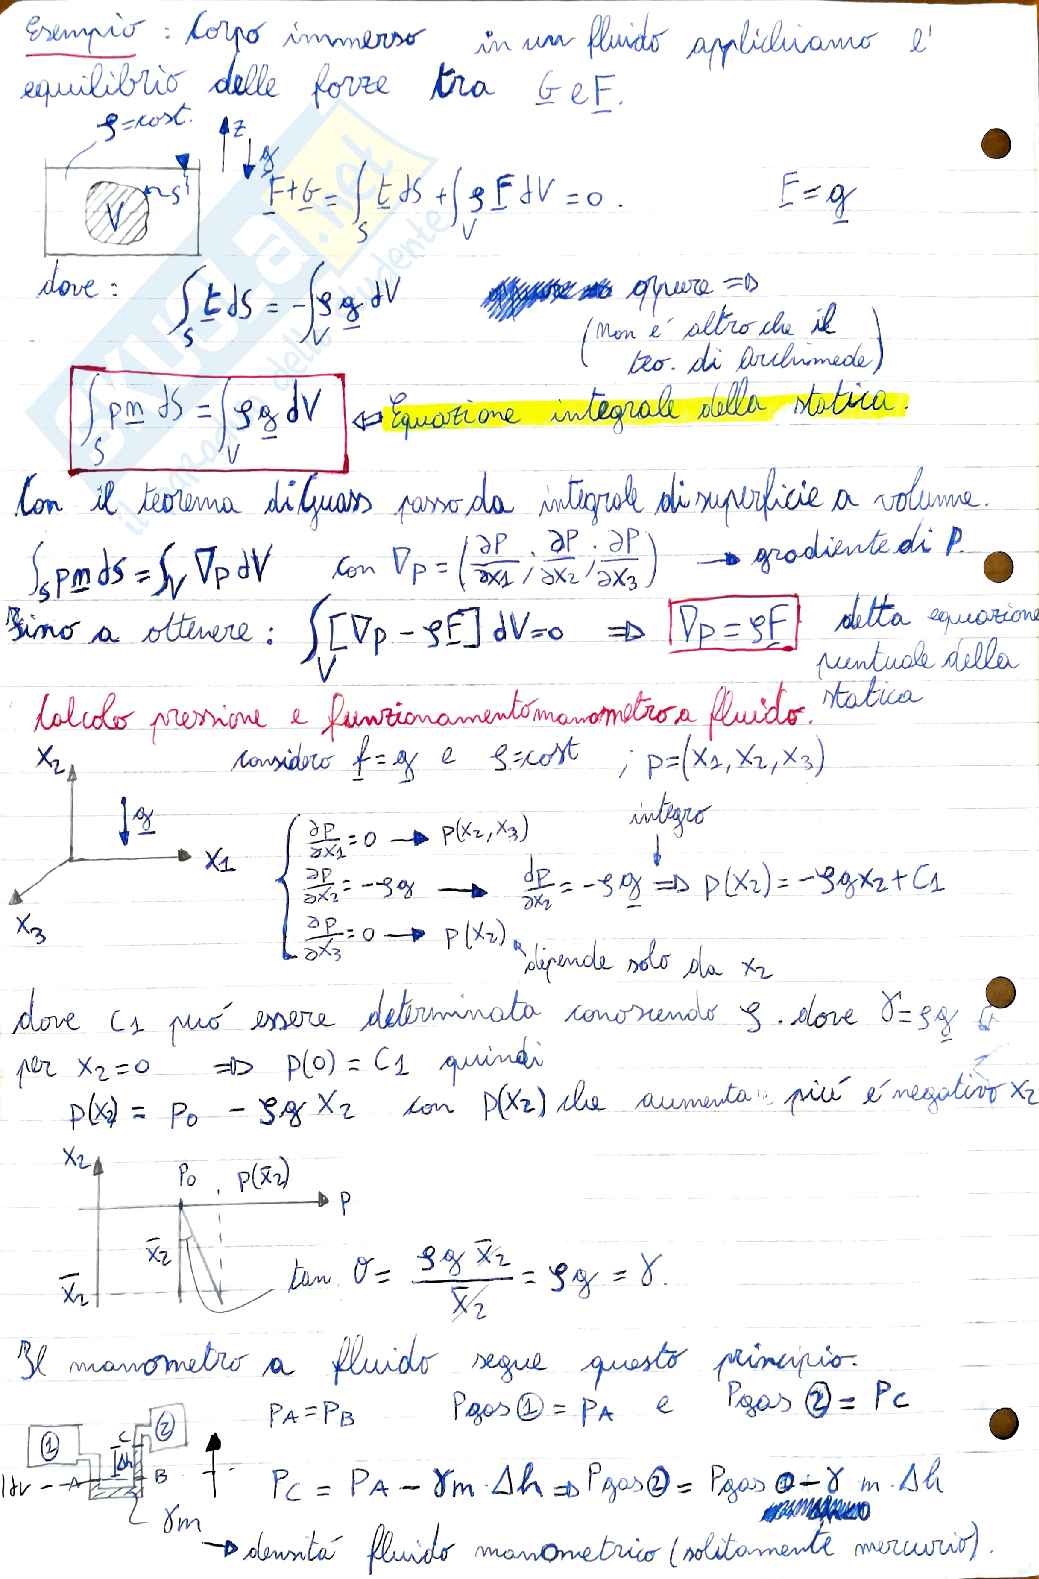 Esempio : Corpo immerso in un fluido applichiamo l'
equilibrio delle forze tra G e F.
ρ=cost.
z
g
S
V
F+G = ∫_S t dS + ∫_V ρ F dV = 0 . F = g
dove : ∫_S t dS = - ∫_V ρ g dV oppure ⇒
(non é altro che il
teo. di Archimede)
∫_S p n dS = ∫_V ρ g dV ⇐ Equazione integrale della statica.
Con il teorema di Guass passo da integrale di superficie a volume.
∫_S p n dS = ∫_V ∇p dV con ∇p = (∂P/∂x1 ; ∂P/∂x2 ; ∂P/∂x3) → gradiente di P.
Sino a ottenere : ∫_V [∇p - ρF] dV=0 ⇒ ∇p = ρF detta equazione
puntuale della
statica
Calcolo pressione e funzionamento manometro a fluido.
x2 considero f = g e ρ=cost ; p=(x1, x2, x3)
g
x1
x3
integro
∂P/∂x1 = 0 → P(x2, x3)
∂P/∂x2 = -ρg → dp/∂x2 = -ρg ⇒ p(x2) = -ρgx2 + C1
∂P/∂x3 = 0 → p(x2)
dipende solo da x2
dove C1 puó essere determinata conoscendo ρ . dove γ=ρg
per x2=0 ⇒ p(0) = C1 quindi
p(x2) = p0 - ρg x2 con p(x2) che aumenta piú é negativo x2
x2
P0 p(x̄2)
P
x̄2
x̄2
tan θ = ρg x̄2 / x̄2 = ρg = γ.
Il manometro a fluido segue questo principio.
PA = PB Pgas ① = PA e Pgas ② = PC
① ② C Δh A B
γm
PC = PA - γm · Δh ⇒ Pgas ② = Pgas ① - γ m · Δh
→ densitá fluido manometrico (solitamente mercurio).